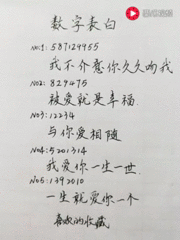 数字表白
NO:1: 587129955
我不介意你久久吻我
NO2: 829475
被爱就是幸福
NO3: 12234
与你爱相随
NO4: 5201314
我爱你一生一世
NO5: 1392010
一生就爱你一个
喜欢的收藏